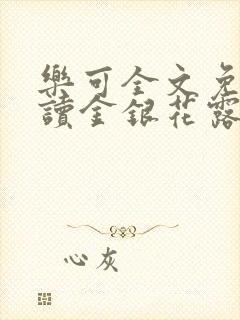 樂可全文免
讀金銀花露
心灰